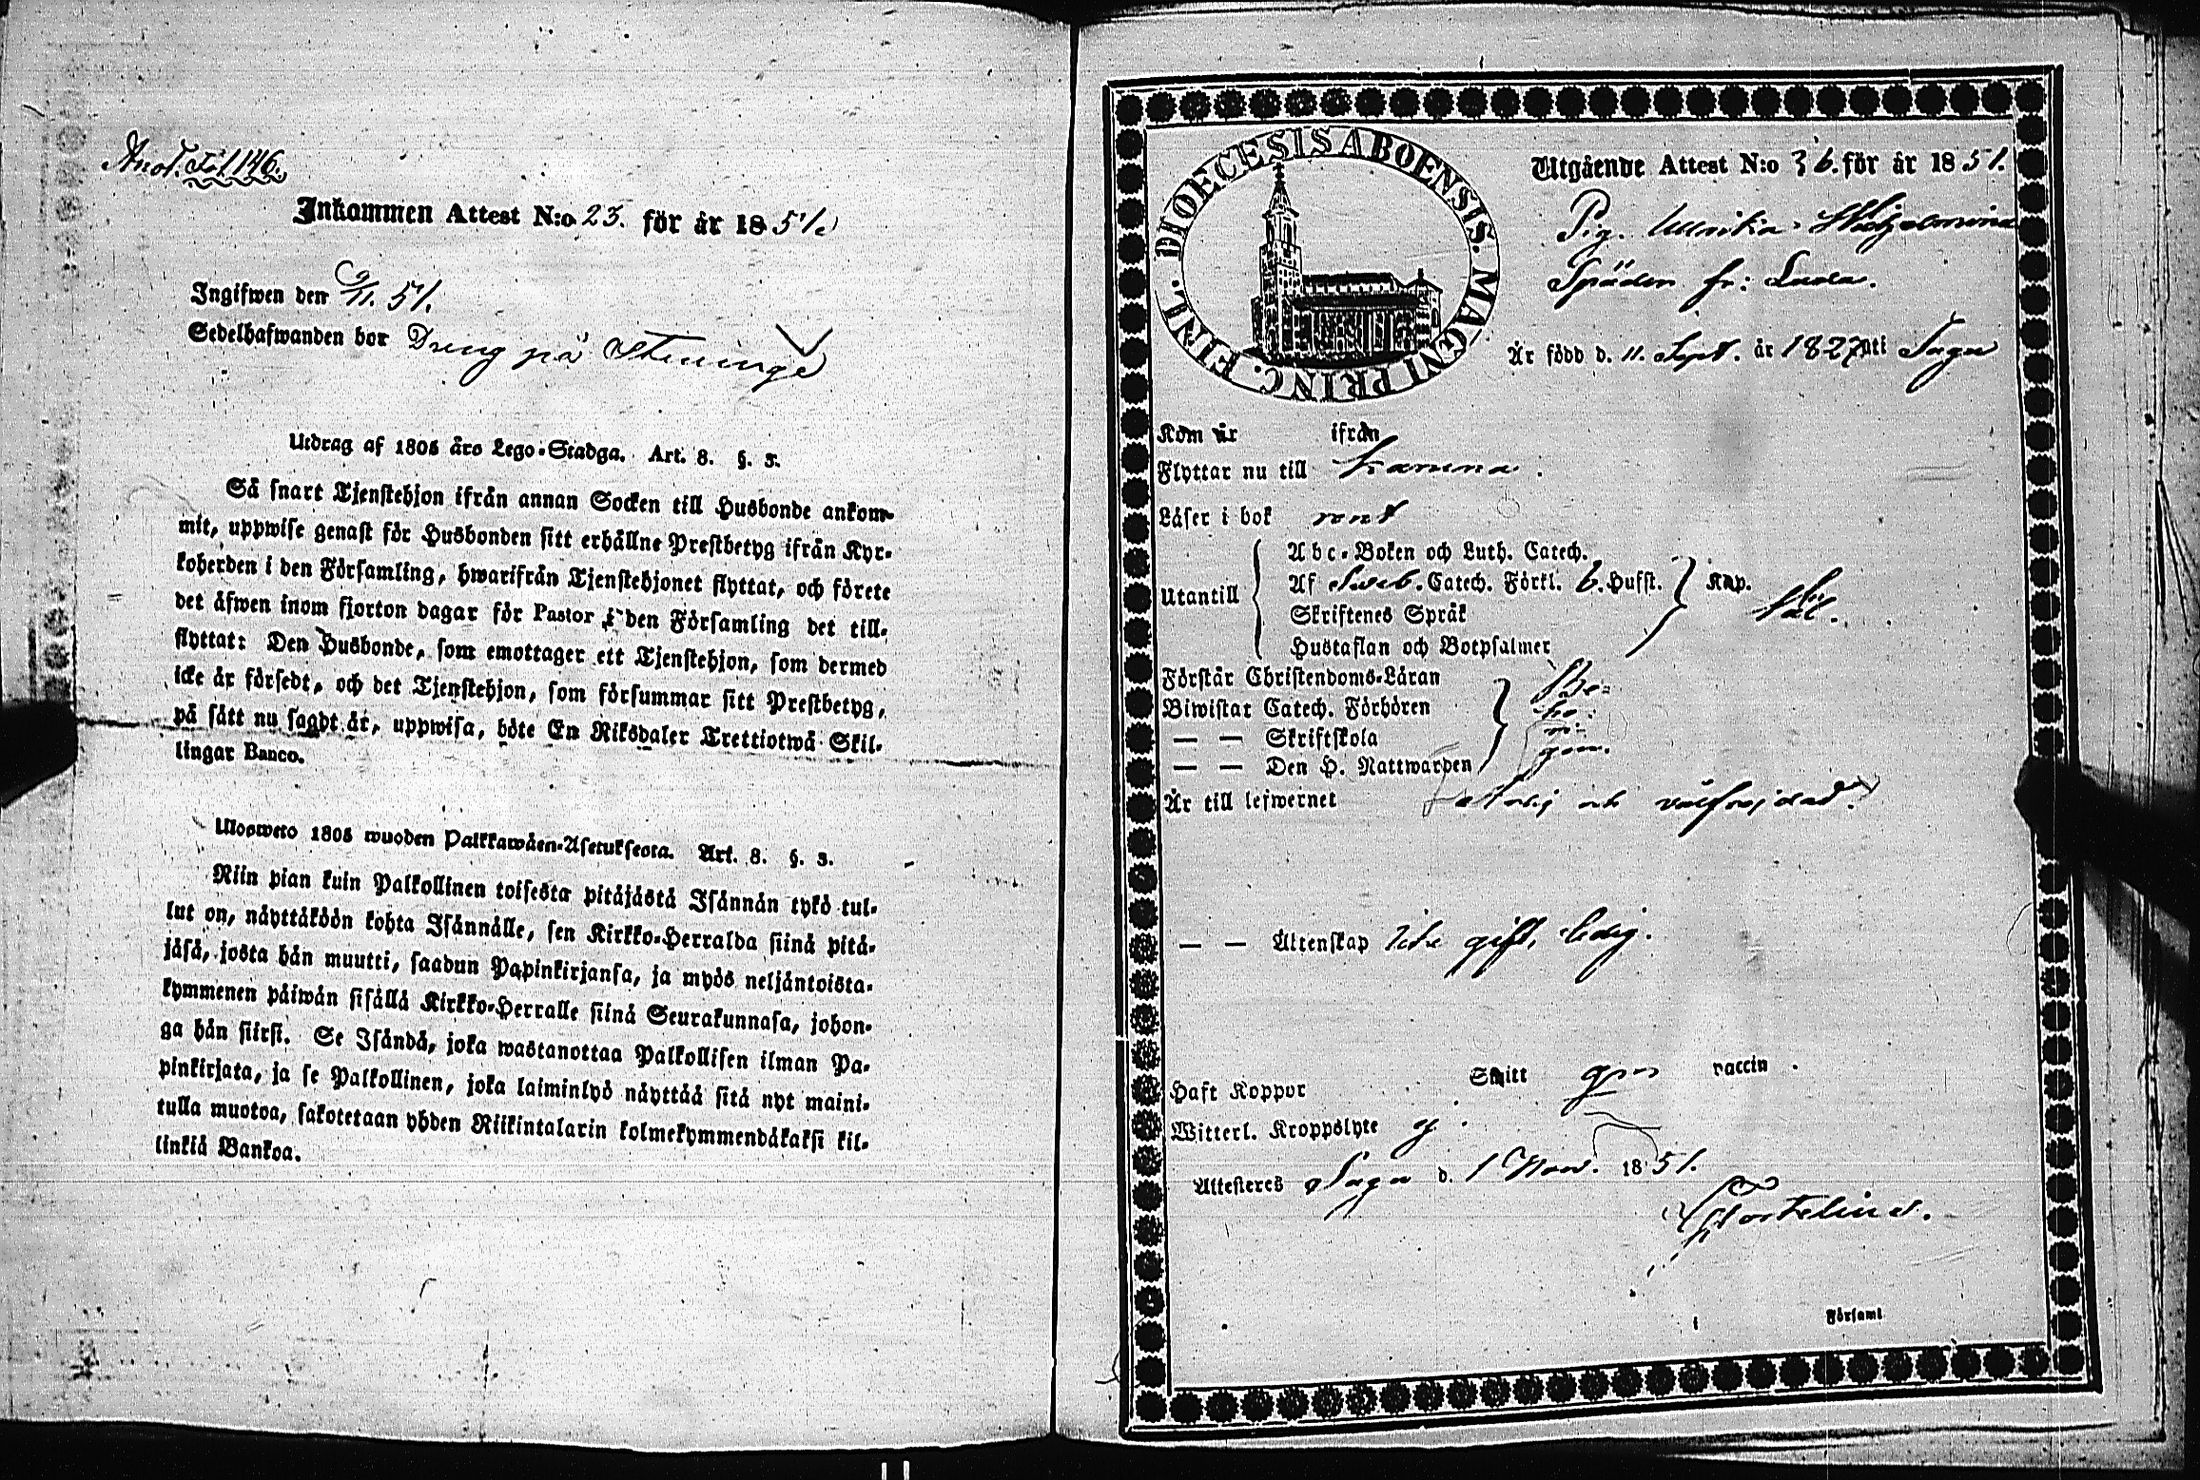 Anot. Fol. 146.
Inkommen Attest N:o 23. för år 1851.
Ingifwen den 9/11. 51.
Sedelhafwanden bor Dreng på Steninge
Utdrag af 1805 års Lego-Stadga. Art. 8. §. 3.
Så snart Tjenstehjon ifrån annan Socken till Husbonde ankom-
mit, uppwise genast för Husbonden sitt erhållne Prestbetyg ifrån Kyr-
koherden i den Församling, hwarifrån Tjenstehjonet flyttat, och förete
det äfwen inom fjorton dagar för Pastor i den Församling det till-
flyttat: Den Husbonde, som emottager ett Tjenstehjon, som dermed
icke är försedt, och det Tjenstehjon, som försummar sitt Prestbetyg,
på sätt nu sagdt är, uppwisa, böte En Riksdaler Trettiotwå Skil-
lingar Banco.
Ulosweto 1805 wuoden Palkkawäen-Asetuksesta. Art. 8. §. 3.
Niin pian kuin Palkollinen toisesta pitäjästä Isännän tykö tul-
lut on, näyttäköön kohta Isännälle, sen Kirkko-Herralda siinä pitä-
jäsä, josta hän muutti, saadun Papinkirjansa, ja myös neljäntoista-
kymmenen päiwän sisällä Kirkko-Herralle siinä Seurakunnasa, johon-
ga hän siirsi. Se Isändä, joka wastanottaa Palkollisen ilman Pa-
pinkirjata, ja se Palkollinen, joka laiminlyö näyttää sitä nyt maini-
tulla muotoa, sakotetaan yhden Riikintalarin kolmekymmendäkaksi kil-
linkiä Bankoa.
DIOECESIS ABOENSIS. MAGNI PRINC. FINL.
Utgående Attest N:o 36. för år 1851.
Pig. Ulrika Wilhelmina
Späder fr:
Är född d. 11. Sept. år 1827 uti Sagu
Kom år ifrån
Flyttar nu till
Läser i bok rent
Abc-Boken och Luth. Catech.
Utantill Af Sveb. Catech. Förkl. 6. Hufst. Kap.
Skriftenes Språk
Hustaflan och Botpsalmer
Förstår Christendoms-Läran
Biwistat Catech. Förhören
— — Skriftskola
— — Den H. Nattwarden
Är till lefwernet och välfrejdad.
— — Äktenskap icke gift, ledig.
Haft Koppor Skitt gen vaccin.
Witterl. Kroppslyte ej.
Attesteres Sagu d. 1 Nov. 1851.
Församl